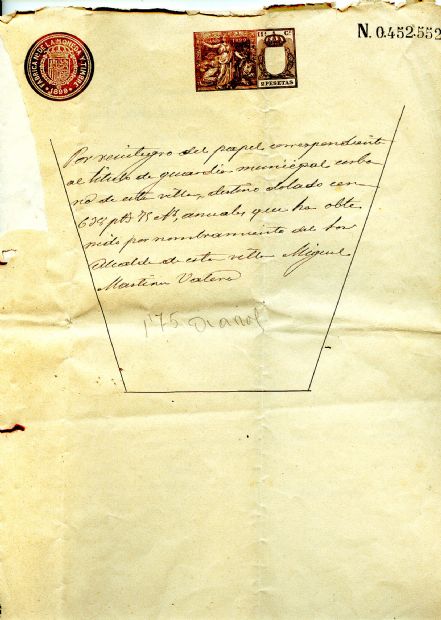 N. 0.452.552
FABRICA N. DE LA MONEDA Y TIMBRE
1899
11ª C.
2 PESETAS
Por reintegro del papel correspondiente
al titulo de guardia municipal urba
no de esta villa, destino dotado con
638 ptˢ 75 ctˢ, anuales que ha obte
nido por nombramiento del Sor
Alcalde de esta villa Miguel
Martinez Valero
1'75 Diarios